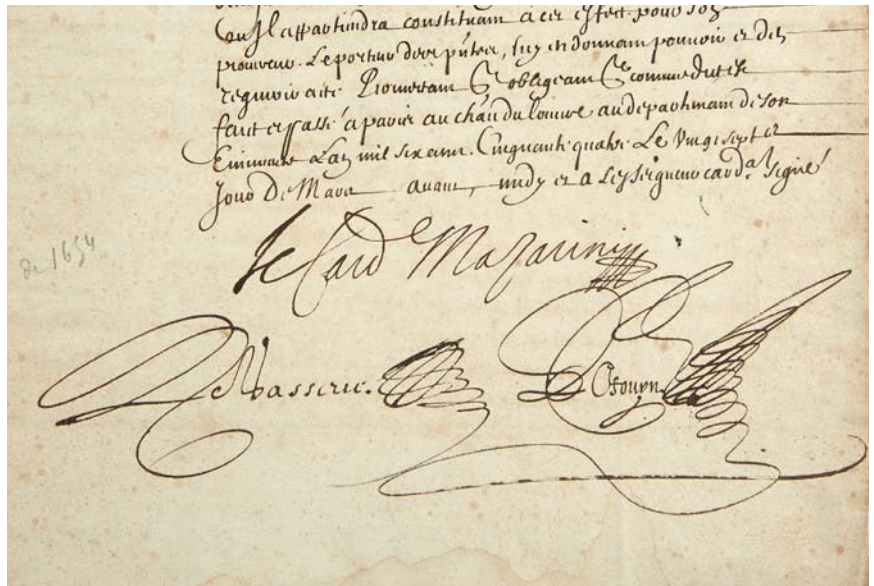 ou Il appartiendra constituant a cet effet pour son
procureur Le porteur des pñtes, luy en donnant pouvoir et de
requerir acte Promettant &c obligeant &c comme dict est
faict et passé a paris au chãu du louvre au departement de son
Eminence L'an mil six cens Cinquante quatre Le Vingt sept e
Jour De Mars avant midy et a led seigneur card.al signé
de 1654
le Card Mazarini